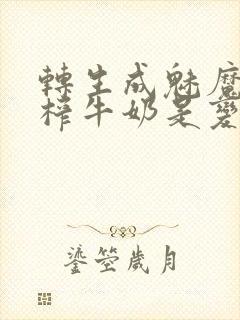 轉生成魅魔
榨牛奶是變
鎏箜歲月